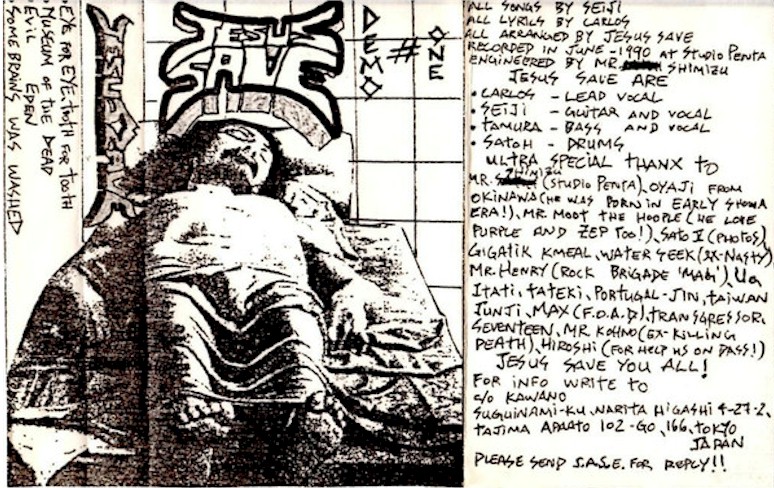 • EYE FOR EYE, TOOTH FOR TOOTH
• MUSEUM OF THE DEAD
• EVIL EDEN
SOME BRAINS WAS WASHED
JESUS SAVE
JESUS
SAVE
DEMO # ONE
ALL SONGS BY SEIJI
ALL LYRICS BY CARLOS
ALL ARRANGED BY JESUS SAVE
RECORDED IN JUNE-1990 AT STUDIO PENTA
ENGINEERED BY MR. SHIMIZU
JESUS SAVE ARE
• CARLOS - LEAD VOCAL
• SEIJI - GUITAR AND VOCAL
• TAMURA - BASS AND VOCAL
• SATOH - DRUMS
ULTRA SPECIAL THANX TO
MR. SHIMIZU (STUDIO PENTA), OYAJI FROM
OKINAWA (HE WAS BORN IN EARLY SHOWA
ERA!), MR. MOOT THE HOOPLE (HE LOVE
PURPLE AND ZEP TOO!), SATO II (PHOTOS),
GIGATIK KMEAL, WATER GEEK (EX-NASTY),
MR. HENRY (ROCK BRIGADE 'MAGI'),
ITATI, TATEKI, PORTUGAL-JIN, TAIWAN
JUNJI, MAX (F.O.A.D), TRANSGRESSOR,
SEVENTEEN, MR. KOHNO (EX-KILLING
DEATH), HIROSHI (FOR HELP US ON BASS!)
JESUS SAVE YOU ALL!
FOR INFO WRITE TO
c/o KAWANO
SUGUINAMI-KU, NARITA HIGASHI 4-27-2,
TAJIMA APAATO 102-GO, 166, TOKYO
JAPAN
PLEASE SEND S.A.S.E. FOR REPLY!!